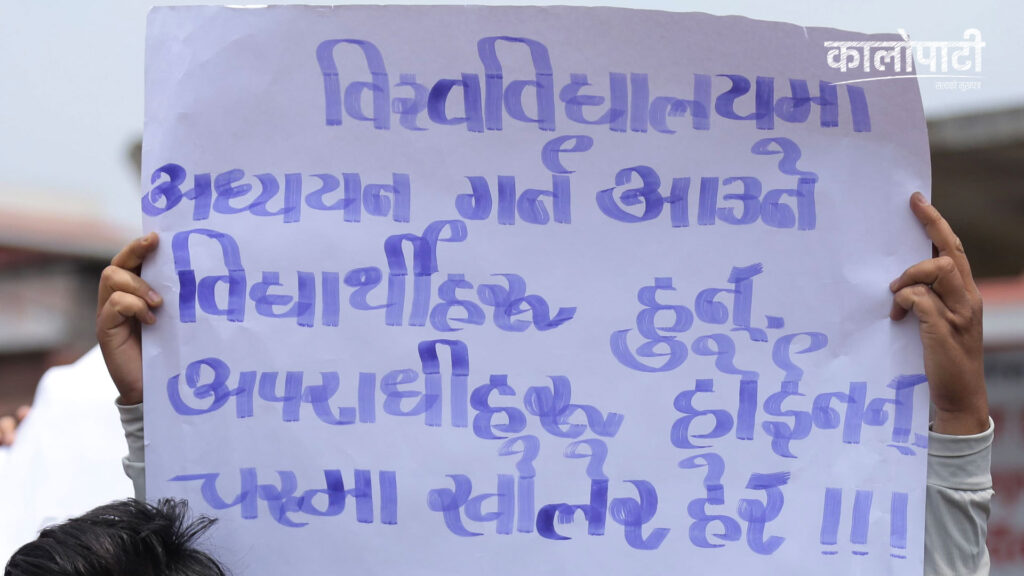 कालोपाटी
विश्वविद्यालयमा
अध्ययन गर्न आउने
विद्यार्थीहरू हुन्
अपराधीहरू होईनन्
चस्मा खोलेर हेर !!!